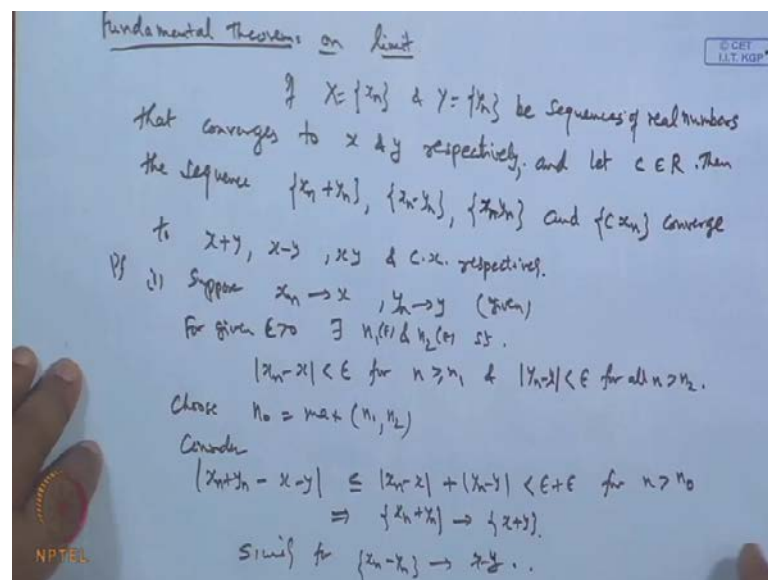 Fundamental Theorems on limit
© CET
I.I.T. KGP
If X = {xn} & Y = {Yn} be sequences of real numbers
that converges to x & y respectively, and let C ∈ R. Then
the sequence {xn + Yn}, {xn - Yn}, {xnYn} and {C xn} converge
to x+y, x-y, xy & C.x. respectively.
Pf (i) Suppose xn → x, Yn → y (given)
For given ε>0 ∃ n1(ε) & n2(ε) st.
|xn - x| < ε for n ≥ n1 & |Yn - y| < ε for all n > n2.
Choose n0 = max (n1, n2)
Consider
|xn+Yn - x - y| ≤ |xn - x| + |Yn - y| < ε + ε for n > n0
⇒ {xn + Yn} → {x+y}.
for {xn - Yn} → x-y ..
NPTEL